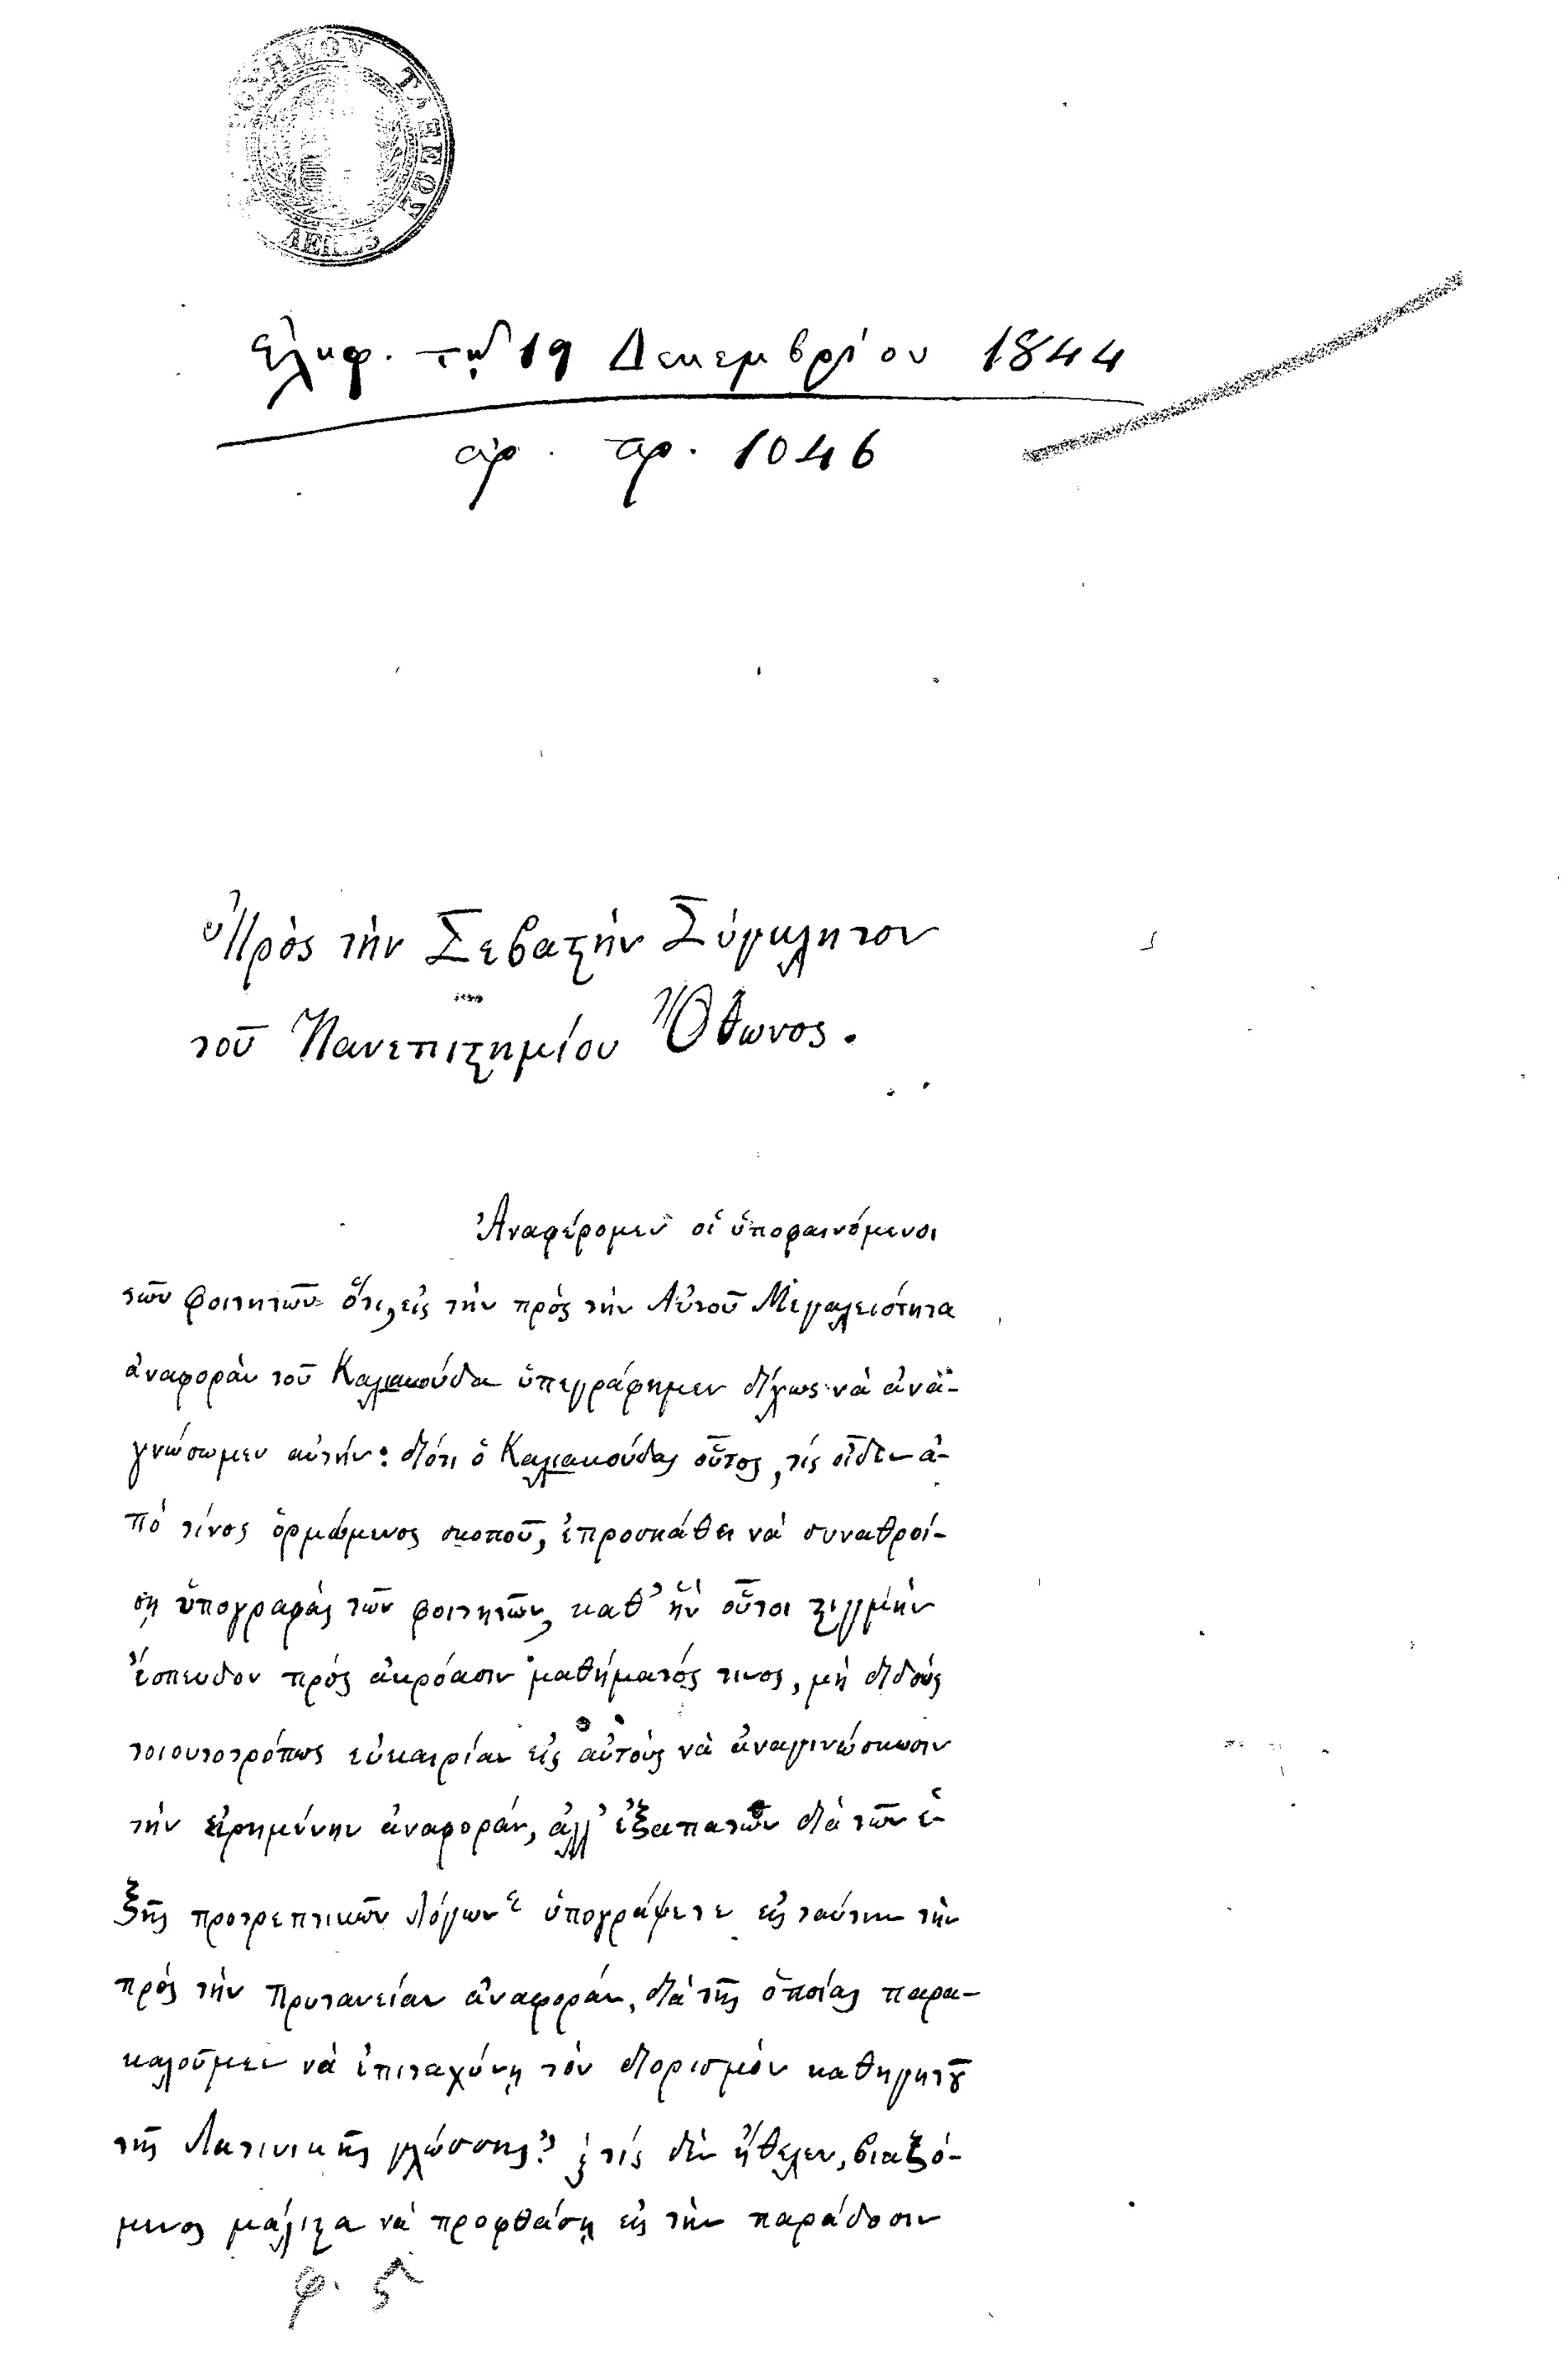 ΣΗΜΟΥ ΤΕΛΟΥΣ
ΛΕΠ. 25
ἐλήφ. τῇ 19 Δεκεμβρίου 1844
ἀρ. πρ. 1046
Πρὸς τὴν Σεβαστὴν Σύγκλητον
τοῦ Πανεπιστημίου Ὄθωνος.
Ἀναφέρομεν οἱ ὑποφαινόμενοι
τῶν φοιτητῶν ὅτι, εἰς τὴν πρὸς τὴν Αὐτοῦ Μεγαλειότητα
ἀναφορὰν τοῦ Καλιακούδα ὑπεγράφημεν δίχως νὰ ἀνα-
γνώσωμεν αὐτήν: διότι ὁ Καλιακούδας οὗτος, τίς οἶδεν ἀ-
πό τίνος ὁρμώμενος σκοποῦ, ἐπροσπάθει νὰ συναθροί-
σῃ ὑπογραφὰς τῶν φοιτητῶν, καθ' ἣν οὗτοι στιγμὴν
ἔσπευδον πρὸς ἀκρόασιν μαθήματός τινος, μὴ διδοὺς
τοιουτοτρόπως εὐκαιρίαν εἰς αὐτοὺς νὰ ἀναγινώσκωσιν
τὴν εἰρημένην ἀναφοράν, ἀλλ' ἐξαπατῶν διὰ τῶν ἑ-
ξῆς προτρεπτικῶν λόγων « ὑπογράψετε εἰς ταύτην τὴν
πρὸς τὴν Πρυτανείαν ἀναφοράν, διὰ τῆς ὁποίας παρα-
καλοῦμεν νὰ ἐπιταχύνῃ τὸν διορισμὸν καθηγητοῦ
τῆς Λατινικῆς γλώσσης» καὶ τίς δὲν ἤθελεν, βιαζό-
μενος μάλιστα νὰ προφθάσῃ εἰς τὴν παράδοσιν
φ. 5